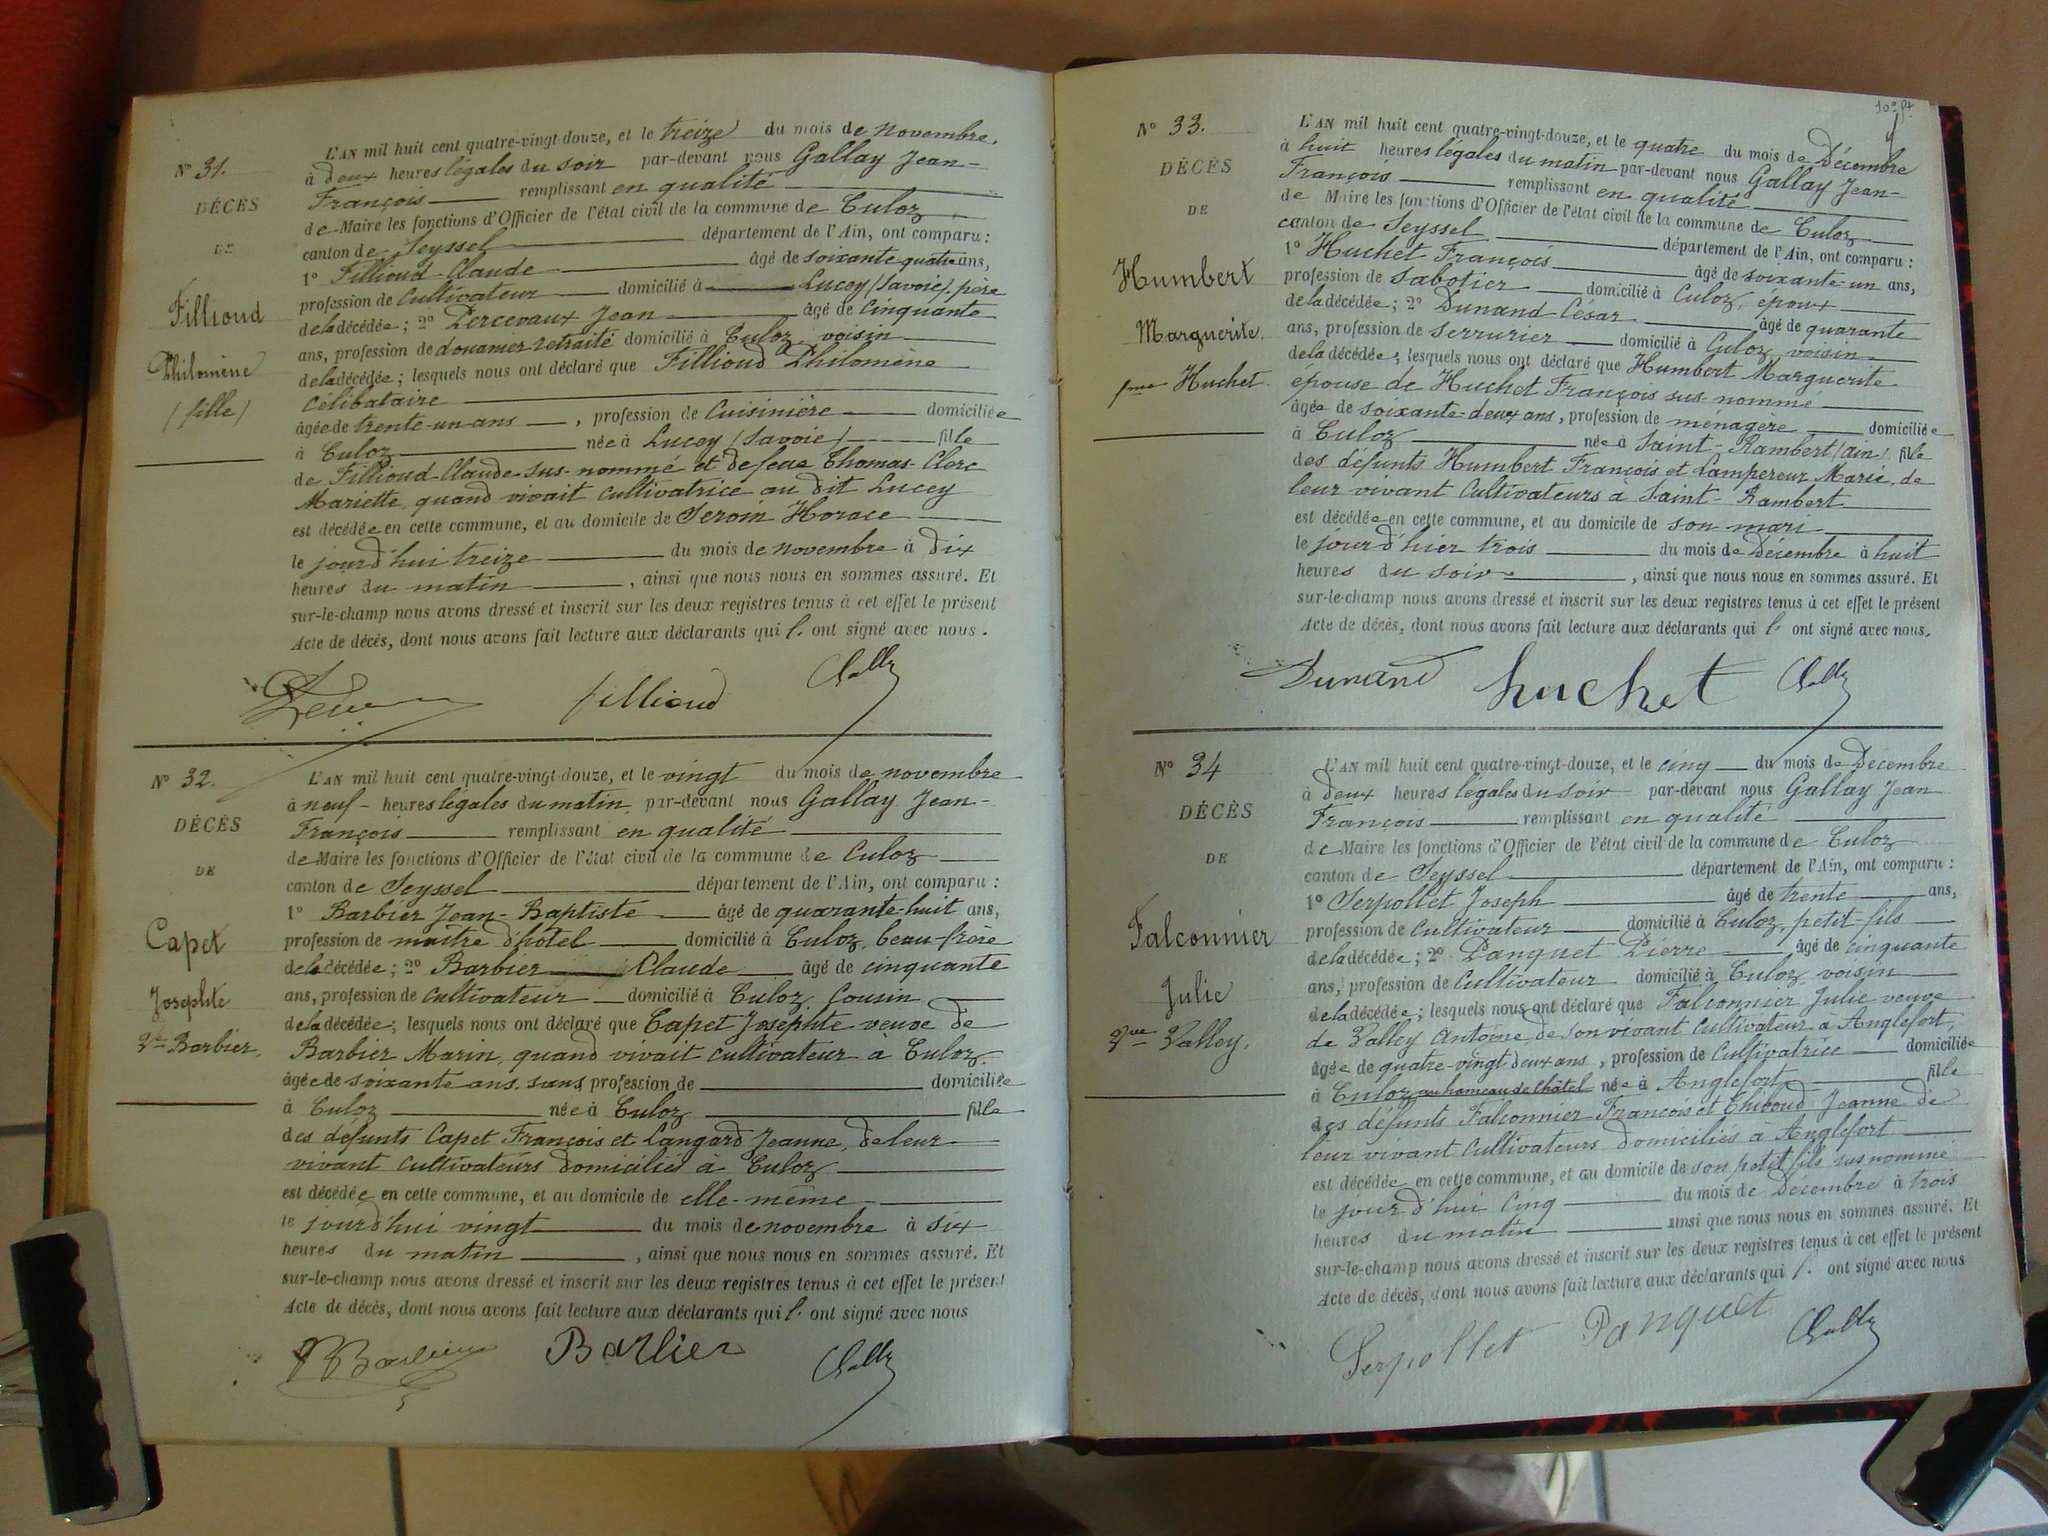 N° 31.
DÉCÈS
DE
Fillioud
Philomène
(fille)
L'AN mil huit cent quatre-vingt-douze, et le treize du mois de novembre.
à deux heures légales du soir par-devant nous Gallay Jean-
François remplissant en qualité
de Maire les fonctions d'Officier de l'état civil de la commune de Culoz
canton de Seyssel département de l'Ain, ont comparu :
1° Fillioud Claude âgé de soixante quatre ans,
profession de cultivateur domicilié à Lucey (Savoie), père
de la décédée ; 2° Percevaux Jean âgé de cinquante
ans, profession de douanier retraité domicilié à Culoz, voisin
de la décédée ; lesquels nous ont déclaré que Fillioud Philomène
Célibataire
âgée de trente-un ans, profession de Cuisinière domiciliée
à Culoz née à Lucey (Savoie) fille
de Fillioud Claude sus-nommé et de feue Thomas-Clerc
Mariette, quand vivait cultivatrice au dit Lucey
est décédée en cette commune, et au domicile de Serom Horace
le jourd'hui treize du mois de novembre à dix
heures du matin, ainsi que nous nous en sommes assuré. Et
sur-le-champ nous avons dressé et inscrit sur les deux registres tenus à cet effet le présent
Acte de décès, dont nous avons fait lecture aux déclarants qui l' ont signé avec nous.
fillioud
N° 32.
DÉCÈS
DE
Capet
Josephte
Vve Barbier.
L'AN mil huit cent quatre-vingt-douze, et le vingt du mois de novembre
à neuf heures légales du matin par-devant nous Gallay Jean-
François remplissant en qualité
de Maire les fonctions d'Officier de l'état civil de la commune de Culoz
canton de Seyssel département de l'Ain, ont comparu :
1° Barbier Jean-Baptiste âgé de quarante-huit ans,
profession de maître d'hôtel domicilié à Culoz, beau-frère
de la décédée ; 2° Barbier Claude âgé de cinquante
ans, profession de cultivateur domicilié à Culoz, Cousin
de la décédée ; lesquels nous ont déclaré que Capet Josephte veuve de
Barbier Marin, quand vivait cultivateur à Culoz.
âgée de soixante ans, sans profession de domiciliée
à Culoz née à Culoz fille
des défunts Capet François et Langard Jeanne, de leur
vivant cultivateurs domiciliés à Culoz
est décédée en cette commune, et au domicile de elle-même
le jourd'hui vingt du mois de novembre à six
heures du matin, ainsi que nous nous en sommes assuré. Et
sur-le-champ nous avons dressé et inscrit sur les deux registres tenus à cet effet le présent
Acte de décès, dont nous avons fait lecture aux déclarants qui l' ont signé avec nous
Barbier Barbier
N° 33.
DÉCÈS
DE
Humbert
Marguerite.
fme Huchet.
L'AN mil huit cent quatre-vingt-douze, et le quatre du mois de Décembre
à huit heures légales du matin par-devant nous Gallay Jean-
François remplissant en qualité
de Maire les fonctions d'Officier de l'état civil de la commune de Culoz
canton de Seyssel département de l'Ain, ont comparu :
1° Huchet François âgé de soixante-un ans,
profession de Sabotier domicilié à Culoz, époux
de la décédée ; 2° Dunand César âgé de quarante
ans, profession de Serrurier domicilié à Culoz, voisin
de la décédée ; lesquels nous ont déclaré que Humbert Marguerite
épouse de Huchet François sus-nommé
âgée de soixante-deux ans, profession de ménagère domiciliée
à Culoz née à Saint-Rambert (Ain) fille
des défunts Humbert François et Lampereur Marie, de
leur vivant Cultivateurs à Saint-Rambert
est décédée en cette commune, et au domicile de son mari
le jour d'hier trois du mois de Décembre à huit
heures du soir, ainsi que nous nous en sommes assuré. Et
sur-le-champ nous avons dressé et inscrit sur les deux registres tenus à cet effet le présent
Acte de décès, dont nous avons fait lecture aux déclarants qui l' ont signé avec nous.
Dunand huchet
N° 34
DÉCÈS
DE
Falconnier
Julie
Vve Valley.
L'AN mil huit cent quatre-vingt-douze, et le cinq du mois de Décembre
à deux heures légales du soir par-devant nous Gallay Jean
François remplissant en qualité
de Maire les fonctions d'Officier de l'état civil de la commune de Culoz
canton de Seyssel département de l'Ain, ont comparu :
1° Serpollet Joseph âgé de trente ans,
profession de Cultivateur domicilié à Culoz, petit-fils
de la décédée ; 2° Panquet Pierre âgé de cinquante
ans, profession de Cultivateur domicilié à Culoz, voisin
de la décédée ; lesquels nous ont déclaré que Falconnier Julie veuve
de Valley Antoine de son vivant Cultivateur à Anglefort,
âgée de quatre-vingt deux ans, profession de Cultivatrice domiciliée
à Culoz au hameau de Châtel née à Anglefort fille
des défunts Falconnier François et Thiboud Jeanne de
leur vivant Cultivateurs domiciliés à Anglefort
est décédée en cette commune, et au domicile de son petit fils sus nommé
le jourd'hui Cinq du mois de Décembre à trois
heures du matin ainsi que nous nous en sommes assuré. Et
sur-le-champ nous avons dressé et inscrit sur les deux registres tenus à cet effet le présent
Acte de décès, dont nous avons fait lecture aux déclarants qui l' ont signé avec nous
Serpollet Panquet